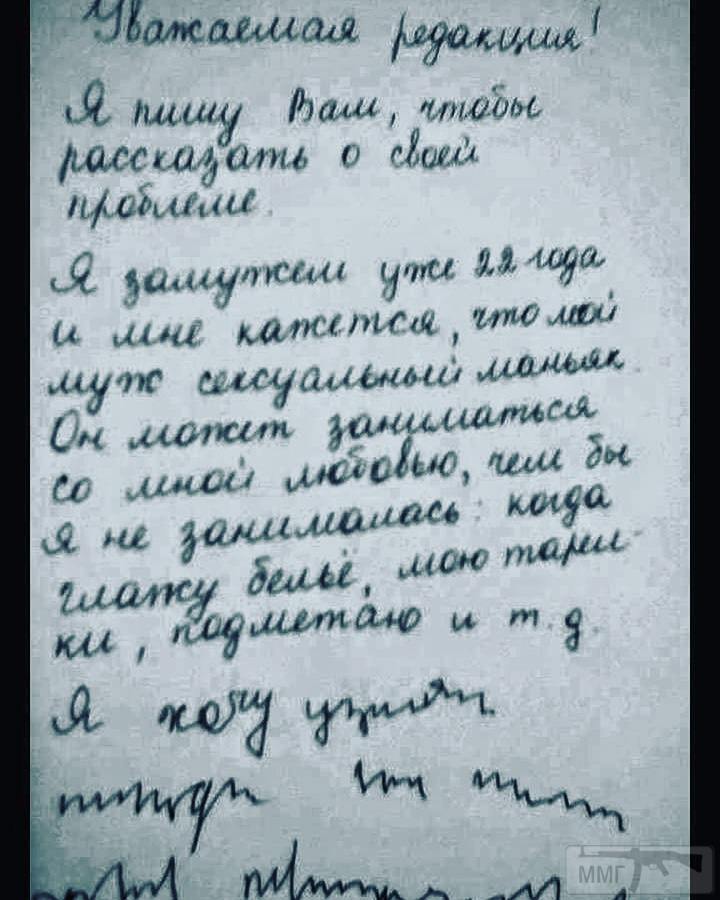 Уважаемая редакция!
Я пишу Вам, чтобы
рассказать о своей
проблеме.
Я замужем уже 22 года
и мне кажется, что мой
муж сексуальный маньяк.
Он может заниматься
со мной любовью, чем бы
я не занималась: когда
глажу бельё, мою тарел-
ки, подметаю и т.д.
Я хочу
ММГ